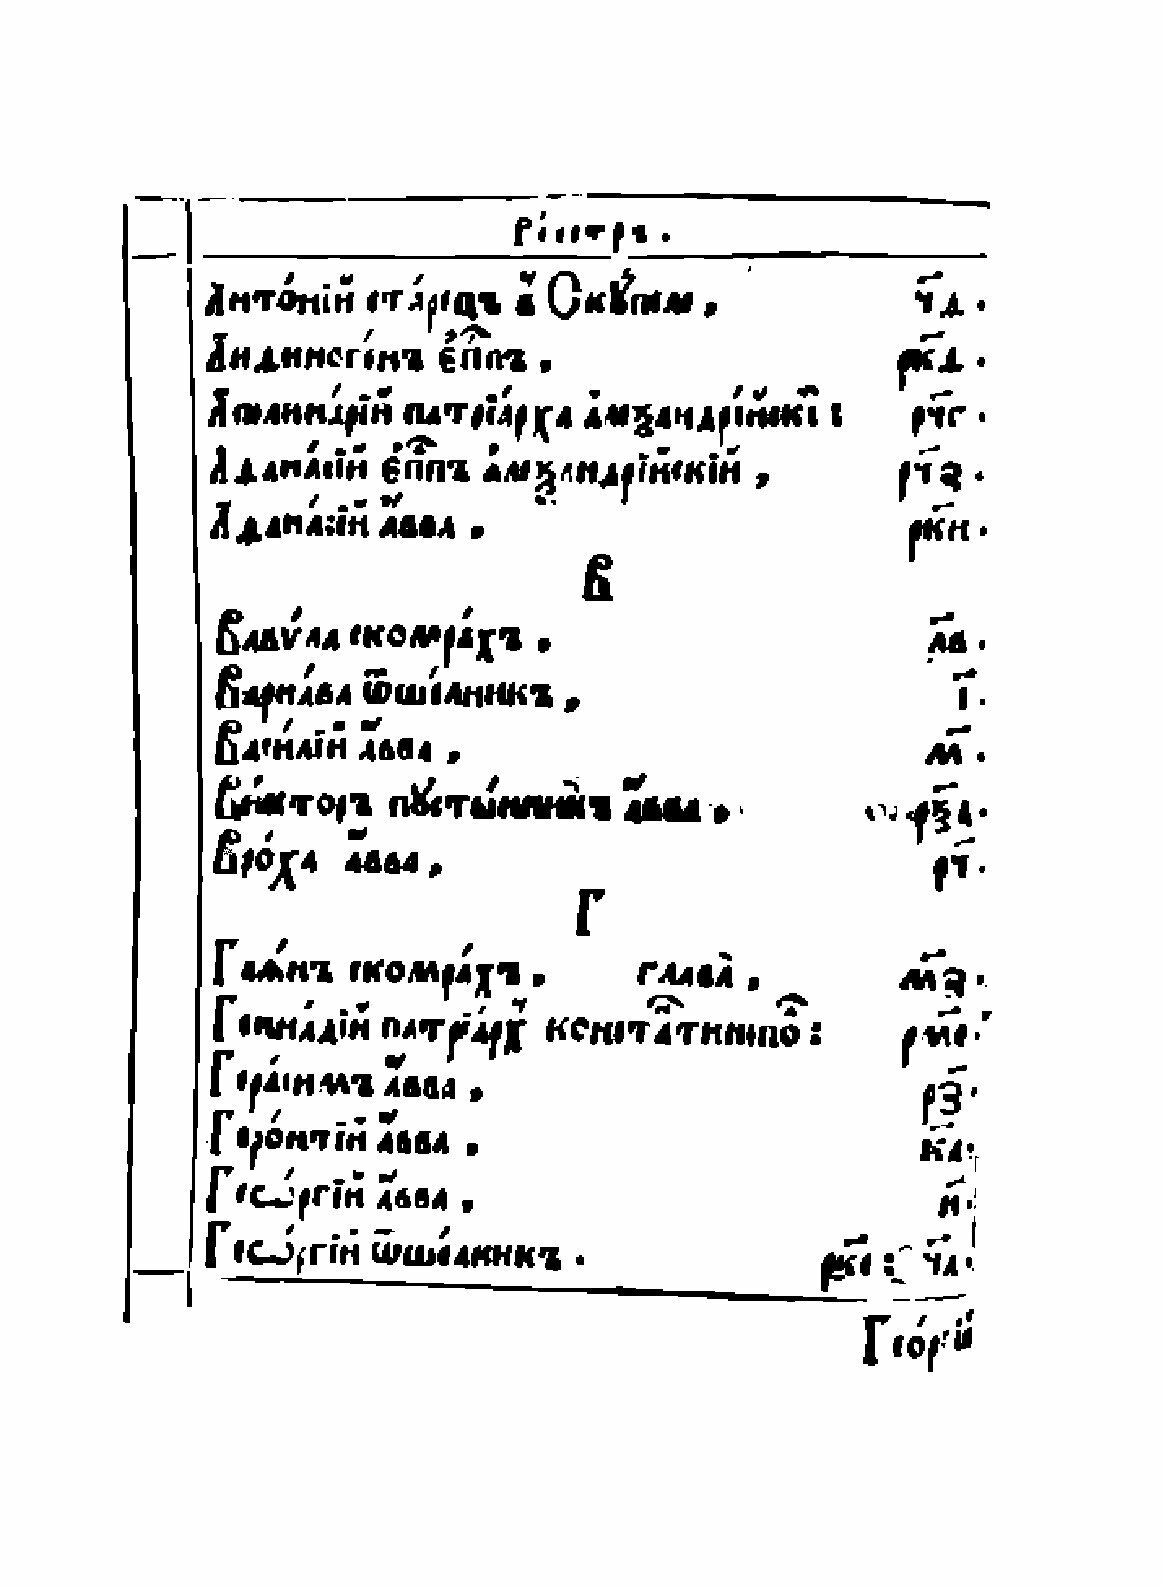 Реестръ.
Анто́нїй ста́рецъ в̾ Ску́пели, ч҃д.
Андиноге́нъ є҆п҃пъ, рк҃д.
Аполина́рїй патрїа́рха а҆леѯандрі́йскі: рч҃г.
Аѳана́сїй є҆п҃пъ а҆леѯандрі́йскїй, рч҃а.
Аѳана́сїй а҆́вва, рк҃и.
В
Вавѵ́ла скомра́хъ, л҃в.
Варна́ва ѿше́лникъ, і҃.
Васи́лїй а҆́вва, м҃.
Ви́кторъ пꙋсты́нникъ а҆́вва, рѯ҃д.
Вро́ха а҆́вва, рч҃.
Г
Гаѧ́нъ скомра́хъ, глава̀, м҃а.
Генна́дїй патрїа́рхъ констан̾тинопо: рм҃е.
Гера́симъ а҆́вва, рз҃.
Геро́нтїй а҆́вва, к҃а:
Геѡ́ргїй а҆́вва, н҃.
Геѡ́ргїй ѿше́лникъ. рк҃е: ч҃а.
Гео́ргїй